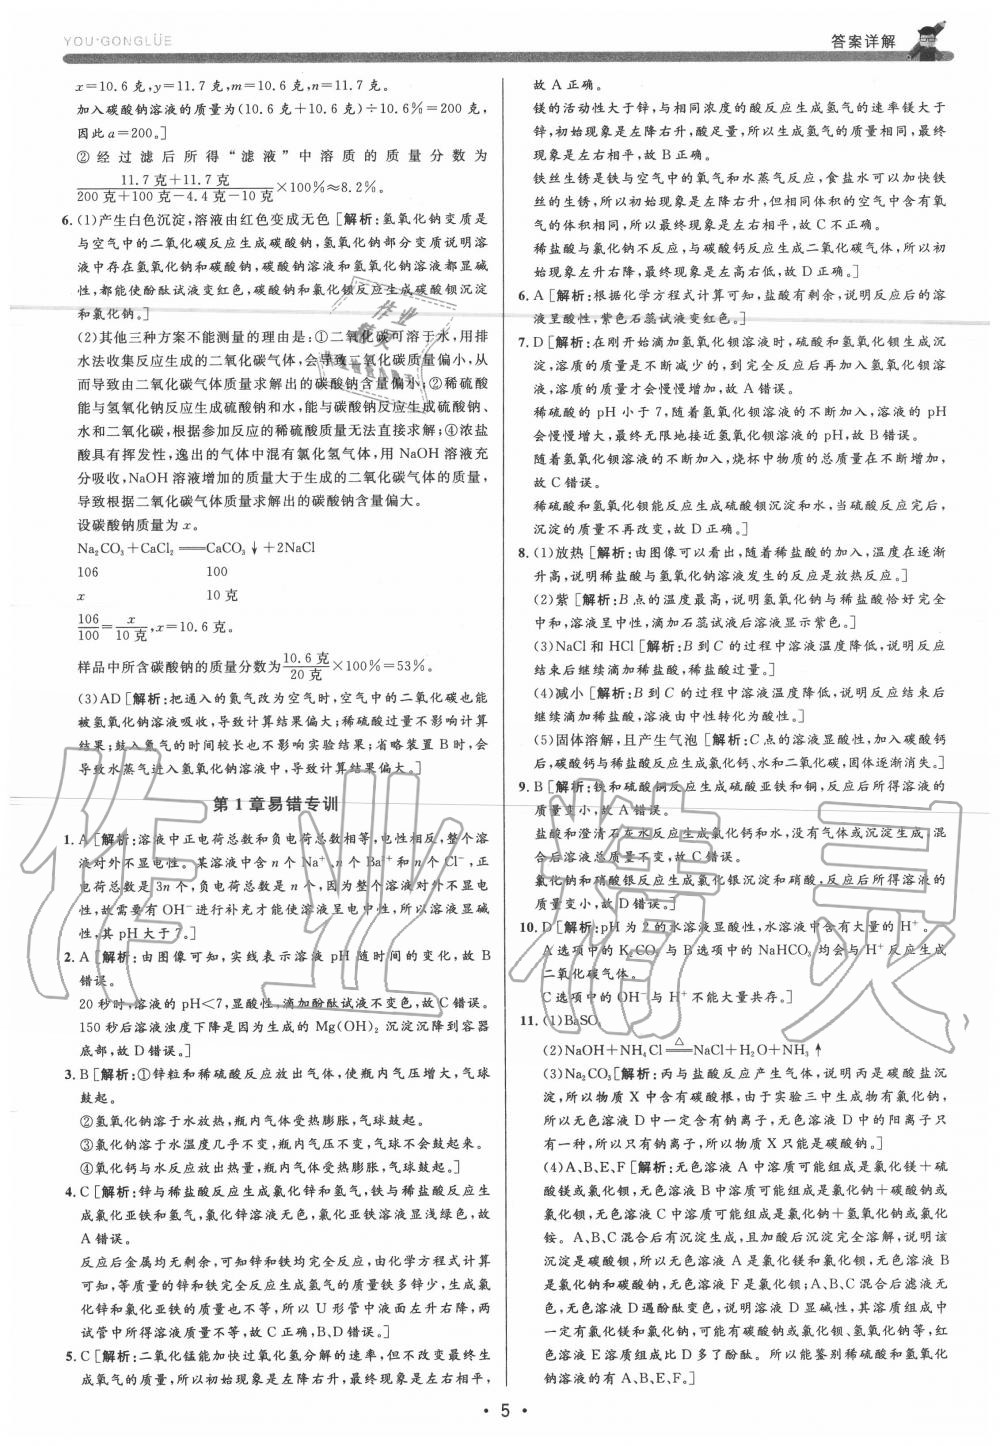 YOU·GONGLÜE
答案详解
x=10.6克,y=11.7克,m=10.6克,n=11.7克。
加入碳酸钠溶液的质量为(10.6克+10.6克)÷10.6%=200克,
因此a=200。]
②经过滤后所得“滤液”中溶质的质量分数为
11.7克+11.7克
200克+100克-4.4克-10克
×100%≈8.2%。
6.(1)产生白色沉淀,溶液由红色变成无色[解析:氢氧化钠变质是
与空气中的二氧化碳反应生成碳酸钠,氢氧化钠部分变质说明溶
液中存在氢氧化钠和碳酸钠,碳酸钠溶液和氢氧化钠溶液都显碱
性,都能使酚酞试液变红色,碳酸钠和氯化钡反应生成碳酸钡沉淀
和氯化钠。]
(2)其他三种方案不能测量的理由是:①二氧化碳可溶于水,用排
水法收集反应生成的二氧化碳气体,会导致二氧化碳质量偏小,从
而导致由二氧化碳气体质量求解出的碳酸钠含量偏小;②稀硫酸
能与氢氧化钠反应生成硫酸钠和水,能与碳酸钠反应生成硫酸钠、
水和二氧化碳,根据参加反应的稀硫酸质量无法直接求解;④浓盐
酸具有挥发性,逸出的气体中混有氯化氢气体,用NaOH溶液充
分吸收,NaOH溶液增加的质量大于生成的二氧化碳的质量,
导致根据二氧化碳气体质量求解出的碳酸钠含量偏大。
设碳酸钠质量为x。
Na₂CO₃+CaCl₂══CaCO₃↓+2NaCl
106 100
x 10克
106/100=x/10克,x=10.6克。
样品中所含碳酸钠的质量分数为10.6克/20克×100%=53%。
(3)AD[解析:把通入的氮气改为空气时,空气中的二氧化碳也能
被氢氧化钠溶液吸收,导致计算结果偏大;稀硫酸过量不影响计算
结果;鼓入氮气的时间较长也不影响实验结果;省略装置B时,会
导致水蒸气进入氢氧化钠溶液中,导致计算结果偏大。]
第1章易错专训
1.A[解析:溶液中正电荷总数和负电荷总数相等,电性相反,整个溶
液对外不显电性。某溶液中含n个Na⁺、n个Ba²⁺和n个Cl⁻,正
电荷总数是3n个,负电荷总数是n个,因为整个溶液对外不显电
性,故需要有OH⁻进行补充才能使溶液呈电中性,所以溶液显碱
性,其pH大于7。]
2.A[解析:由图像可知,实线表示溶液pH随时间的变化,故B
错误。
20秒时,溶液的pH<7,显酸性,滴加酚酞试液不变色,故C错误。
150秒后溶液浊度下降是因为生成的Mg(OH)₂沉淀沉降到容器
底部,故D错误。]
3.B[解析:①锌粒和稀硫酸反应放出气体,使瓶内气压增大,气球
鼓起。
②氢氧化钠溶于水放热,瓶内气体受热膨胀,气球鼓起。
③氯化钠溶于水温度几乎不变,瓶内气压不变,气球不会鼓起来。
④氧化钙与水反应放出热量,瓶内气体受热膨胀,气球鼓起。]
4.C[解析:锌与稀盐酸反应生成氯化锌和氢气,铁与稀盐酸反应生
成氯化亚铁和氢气,氯化锌溶液无色,氯化亚铁溶液显浅绿色,故
A错误。
反应后金属均无剩余,可知锌和铁均完全反应,由化学方程式计算
可知,等质量的锌和铁完全反应生成氢气的质量铁多锌少,生成氯
化锌和氯化亚铁的质量也不等,所以U形管中液面左升右降,两
试管中所得溶液质量不等,故C正确,B、D错误。]
5.C[解析:二氧化锰能加快过氧化氢分解的速率,但不改变最终生
成氧气的质量,所以初始现象是左降右升,最终现象是左右相平,
故A正确。
镁的活动性大于锌,与相同浓度的酸反应生成氢气的速率镁大于
锌,初始现象是左降右升,酸足量,所以生成氢气的质量相同,最终
现象是左右相平,故B正确。
铁丝生锈是铁与空气中的氧气和水蒸气反应,食盐水可以加快铁
丝的生锈,所以初始现象是左降右升,但相同体积的空气中含有氧
气的体积相同,所以最终现象是左右相平,故C不正确。
稀盐酸与氯化钠不反应,与碳酸钙反应生成二氧化碳气体,所以初
始现象左升右降,最终现象是左高右低,故D正确。]
6.A[解析:根据化学方程式计算可知,盐酸有剩余,说明反应后的溶
液呈酸性,紫色石蕊试液变红色。]
7.D[解析:在刚开始滴加氢氧化钡溶液时,硫酸和氢氧化钡生成沉
淀,溶质的质量是不断减少的,到完全反应后再加入氢氧化钡溶
液,溶质的质量才会慢慢增加,故A错误。
稀硫酸的pH小于7,随着氢氧化钡溶液的不断加入,溶液的pH
会慢慢增大,最终无限地接近氢氧化钡溶液的pH,故B错误。
随着氢氧化钡溶液的不断加入,烧杯中物质的总质量在不断增加,
故C错误。
稀硫酸和氢氧化钡能反应生成硫酸钡沉淀和水,当硫酸反应完后,
沉淀的质量不再改变,故D正确。]
8.(1)放热[解析:由图像可以看出,随着稀盐酸的加入,温度在逐渐
升高,说明稀盐酸与氢氧化钠溶液发生的反应是放热反应。]
(2)紫[解析:B点的温度最高,说明氢氧化钠与稀盐酸恰好完全
中和,溶液呈中性,滴加石蕊试液后溶液显示紫色。]
(3)NaCl和HCl[解析:B到C的过程中溶液温度降低,说明反应
结束后继续滴加稀盐酸,稀盐酸过量。]
(4)减小[解析:B到C的过程中溶液温度降低,说明反应结束后
继续滴加稀盐酸,溶液由中性转化为酸性。]
(5)固体溶解,且产生气泡[解析:C点的溶液显酸性,加入碳酸钙
后,碳酸钙与稀盐酸反应生成氯化钙、水和二氧化碳,固体逐渐消失。]
9.B[解析:铁和硫酸铜反应生成硫酸亚铁和铜,反应后所得溶液的
质量变小,故A错误。
盐酸和澄清石灰水反应生成氯化钙和水,没有气体或沉淀生成,混
合后溶液总质量不变,故C错误。
氯化钠和硝酸银反应生成氯化银沉淀和硝酸,反应后所得溶液的
质量变小,故D错误。]
10.D[解析:pH为2的水溶液显酸性,水溶液中含有大量的H⁺。
A选项中的K₂CO₃与B选项中的NaHCO₃均会与H⁺反应生成
二氧化碳气体。
C选项中的OH⁻与H⁺不能大量共存。]
11.(1)BaSO₄
(2)NaOH+NH₄Cl══△NaCl+H₂O+NH₃↑
(3)Na₂CO₃[解析:丙与盐酸反应产生气体,说明丙是碳酸盐沉
淀,所以物质X中含有碳酸根,由于实验三中生成物有氯化钠,
所以无色溶液D中一定含有钠离子,无色溶液D中的阳离子只
有一种,所以只有钠离子,所以物质X只能是碳酸钠。]
(4)A、B、E、F[解析:无色溶液A中溶质可能组成是氯化镁+硫
酸镁或氯化钡,无色溶液B中溶质可能组成是氯化钠+碳酸钠或
氯化钡,无色溶液C中溶质可能组成是氯化钠+氢氧化钠或氯化
铵。A、B、C混合后有沉淀生成,且加酸后沉淀完全溶解,说明该
沉淀是碳酸钡,所以无色溶液A是氯化镁和氯化钡,无色溶液B
是氯化钠和碳酸钠,无色溶液F是氯化钡;A、B、C混合后滤液无
色,无色溶液D遇酚酞变色,说明溶液D显碱性,其溶质组成中
一定有氯化镁和氯化钠,可能有碳酸钠或氯化钡、氢氧化钠等,红
色溶液E溶质组成比D多了酚酞。所以能鉴别稀硫酸和氢氧化
钠溶液的有A、B、E、F。]
• 5 •
作业精灵